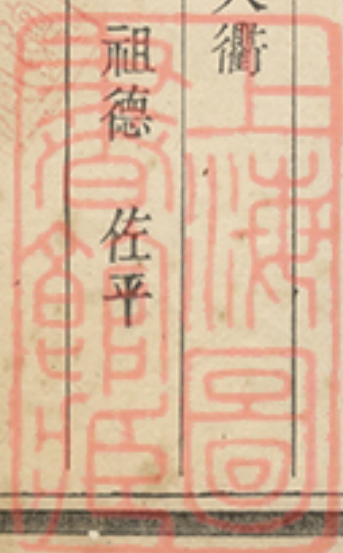 衢
祖德 佐平
上海圖
書館藏